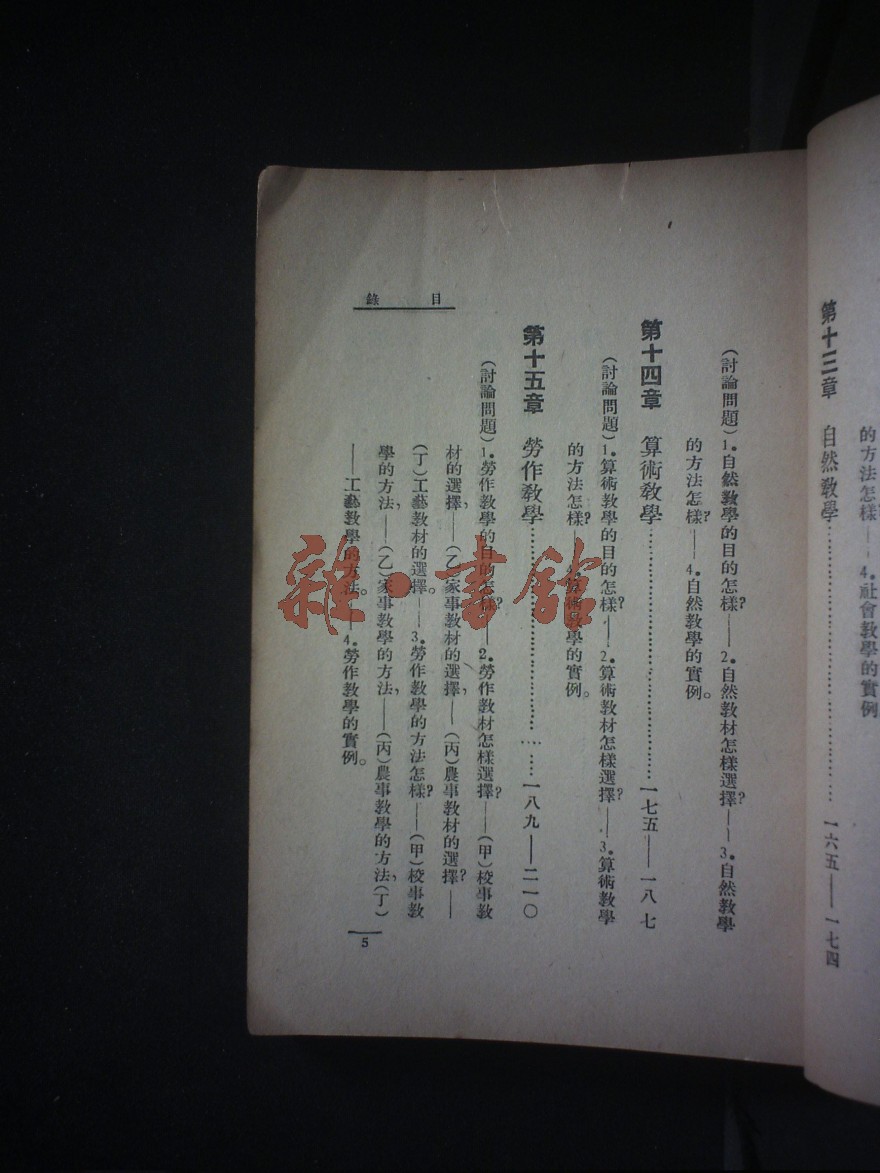 的方法怎樣——4.社會教學的實例
第十三章　自然教學……………………………一六五——一七四
(討論問題)1.自然教學的目的怎樣?——2.自然教材怎樣選擇?——3.自然教學
的方法怎樣?——4.自然教學的實例。
第十四章　算術教學……………………………一七五——一八七
(討論問題)1.算術教學的目的怎樣?——2.算術教材怎樣選擇?——3.算術教學
的方法怎樣?——4.算術教學的實例。
第十五章　勞作教學……………………………一八九——二一〇
(討論問題)1.勞作教學的目的怎樣?——2.勞作教材怎樣選擇?——(甲)校事教
材的選擇,——(乙)家事教材的選擇,——(丙)農事教材的選擇?——
(丁)工藝教材的選擇。——3.勞作教學的方法怎樣?——(甲)校事教
學的方法,——(乙)家事教學的方法,——(丙)農事教學的方法,(丁)
——工藝教學的方法。——4.勞作教學的實例。
目錄
5
雜·書館